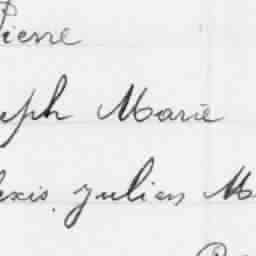 Pierre
eph Marie
exis julien M